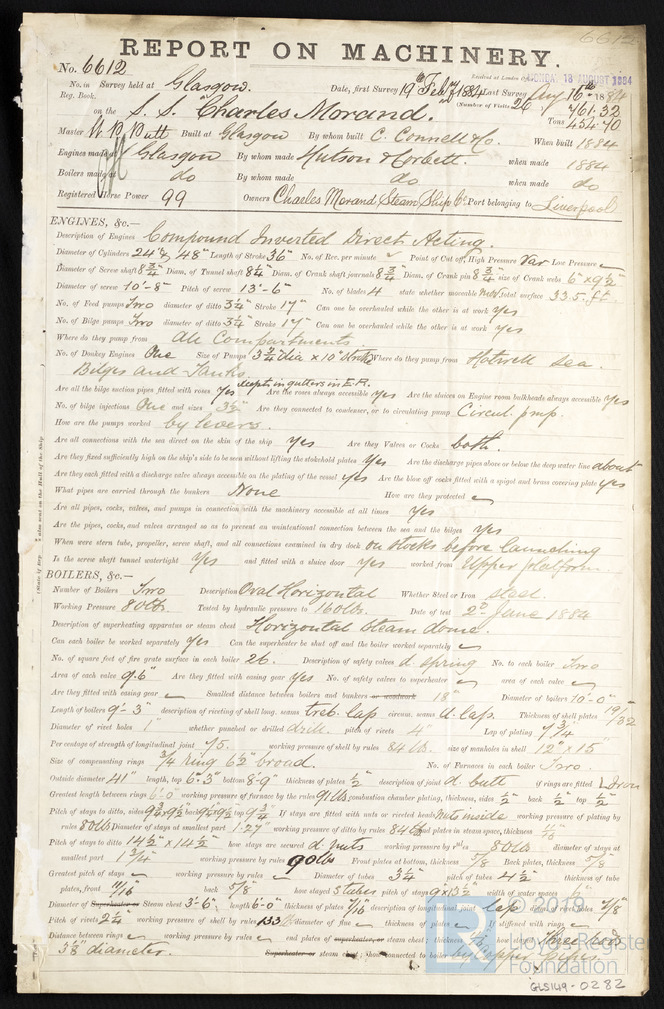 6612
REPORT ON MACHINERY.
No. 6612
Received at London Office MONDAY 18 AUGUST 1884
No. in Reg. Book. Survey held at Glasgow. Date, first Survey 19th Feby 1884 Last Survey Aug 16th 1884
(Number of Visits 26)
on the S. S. "Charles Morand. Tons 761.32 454.70
Master Built at Glasgow By whom built C. Connell & Co. When built 1884
Engines made at Glasgow By whom made Hutson & Corbett. when made 1884
Boilers made at do By whom made do when made do
Registered Horse Power 99 Owners Charles Morand Steam Ship Co. Port belonging to Liverpool
ENGINES, &c.—
Description of Engines Compound Inverted Direct Acting.
Diameter of Cylinders 24" & 48" Length of Stroke 36" No. of Rev. per minute Point of Cut off, High Pressure Var Low Pressure
Diameter of Screw shaft 8 3/4" Diam. of Tunnel shaft 8 1/4" Diam. of Crank shaft journals 8 3/4" Diam. of Crank pin 8 3/4" size of Crank webs 6" x 9 1/2"
Diameter of screw 10'-8" Pitch of screw 13'-6" No. of blades 4 state whether moveable Total surface 33.5 ft
No. of Feed pumps Two diameter of ditto 3 1/4" Stroke 17" Can one be overhauled while the other is at work Yes
No. of Bilge pumps Two diameter of ditto 3 1/4" Stroke 17" Can one be overhauled while the other is at work Yes
Where do they pump from All Compartments
No. of Donkey Engines One Size of Pumps 3 3/4" dia x 10" Stroke Where do they pump from Hotwell Sea.
Bilges and Tanks.
Are all the bilge suction pipes fitted with roses Yes except in gutters in E.R. Are the roses always accessible Yes Are the sluices on Engine room bulkheads always accessible Yes
No. of bilge injections One and sizes 3 1/2" Are they connected to condenser, or to circulating pump Circul. pmp.
How are the pumps worked by levers.
Are all connections with the sea direct on the skin of the ship Yes Are they Valves or Cocks both.
Are they fixed sufficiently high on the ship's side to be seen without lifting the stokehold plates Yes Are the discharge pipes above or below the deep water line about
Are they each fitted with a discharge valve always accessible on the plating of the vessel Yes Are the blow off cocks fitted with a spigot and brass covering plate Yes
What pipes are carried through the bunkers None How are they protected
Are all pipes, cocks, valves, and pumps in connection with the machinery accessible at all times Yes
Are the pipes, cocks, and valves arranged so as to prevent an unintentional connection between the sea and the bilges Yes
When were stern tube, propeller, screw shaft, and all connections examined in dry dock on stocks before launching
Is the screw shaft tunnel watertight Yes and fitted with a sluice door Yes worked from Upper platform.
BOILERS, &c.—
Number of Boilers Two Description Oval Horizontal Whether Steel or Iron steel.
Working Pressure 80 lbs. Tested by hydraulic pressure to 160 lbs. Date of test 2d June 1884
Description of superheating apparatus or steam chest Horizontal steam dome.
Can each boiler be worked separately Yes Can the superheater be shut off and the boiler worked separately
No. of square feet of fire grate surface in each boiler 26. Description of safety valves d. spring No. to each boiler Two
Area of each valve 9.6" Are they fitted with easing gear Yes No. of safety valves to superheater area of each valve
Are they fitted with easing gear Smallest distance between boilers and bunkers or woodwork 18" Diameter of boilers 10'-0"
Length of boilers 9'-3" description of riveting of shell long. seams treb. lap circum. seams d. lap. Thickness of shell plates 19/32
Diameter of rivet holes 1" whether punched or drilled drill. pitch of rivets 4" Lap of plating 7 3/4"
Per centage of strength of longitudinal joint 75. working pressure of shell by rules 84 lb. size of manholes in shell 12" x 15"
Size of compensating rings 3/4 ring 6 1/2" broad. No. of Furnaces in each boiler Two.
Outside diameter 41" length, top 6'-3" bottom 8'-9" thickness of plates 1/2" description of joint d. butt if rings are fitted
Greatest length between rings 6'-0" working pressure of furnace by the rules 91 lbs combustion chamber plating, thickness, sides 1/2" back 1/2" top 1/2"
Pitch of stays to ditto, sides 9 3/4 x 9 1/2 back 9 1/2 x 9 1/2 top 9 3/4 If stays are fitted with nuts or riveted heads Nuts inside working pressure of plating by
rules 80 lbs Diameter of stays at smallest part 1.27" working pressure of ditto by rules 84 lbs end plates in steam space, thickness
Pitch of stays to ditto 14 1/2" x 14 1/2" how stays are secured d. nuts working pressure by rules 80 lbs diameter of stays at
smallest part 1 3/4" working pressure by rules 90 lbs Front plates at bottom, thickness 5/8 Back plates, thickness 5/8
Greatest pitch of stays working pressure by rules Diameter of tubes 3 1/4" pitch of tubes 4 1/2" thickness of tube
plates, front 11/16 back 5/8" how stayed S tubes pitch of stays 9 x 13 1/2 width of water spaces 6"
Diameter of Superheater or Steam chest 3'-6" length 6'-0" thickness of plates 7/16 description of longitudinal joint lap diam. of rivet holes 7/8
Pitch of rivets 2 1/4" working pressure of shell by rules 133 lb diameter of flue thickness of plates If stiffened with rings
Distance between rings working pressure by rules end plates of superheater, or steam chest; thickness how stayed
3 7/8" diameter. Superheater or steam chest; how connected to boiler by copper pipes.
© 2019
LR
Lloyd's Register
Foundation
GLS149-0282